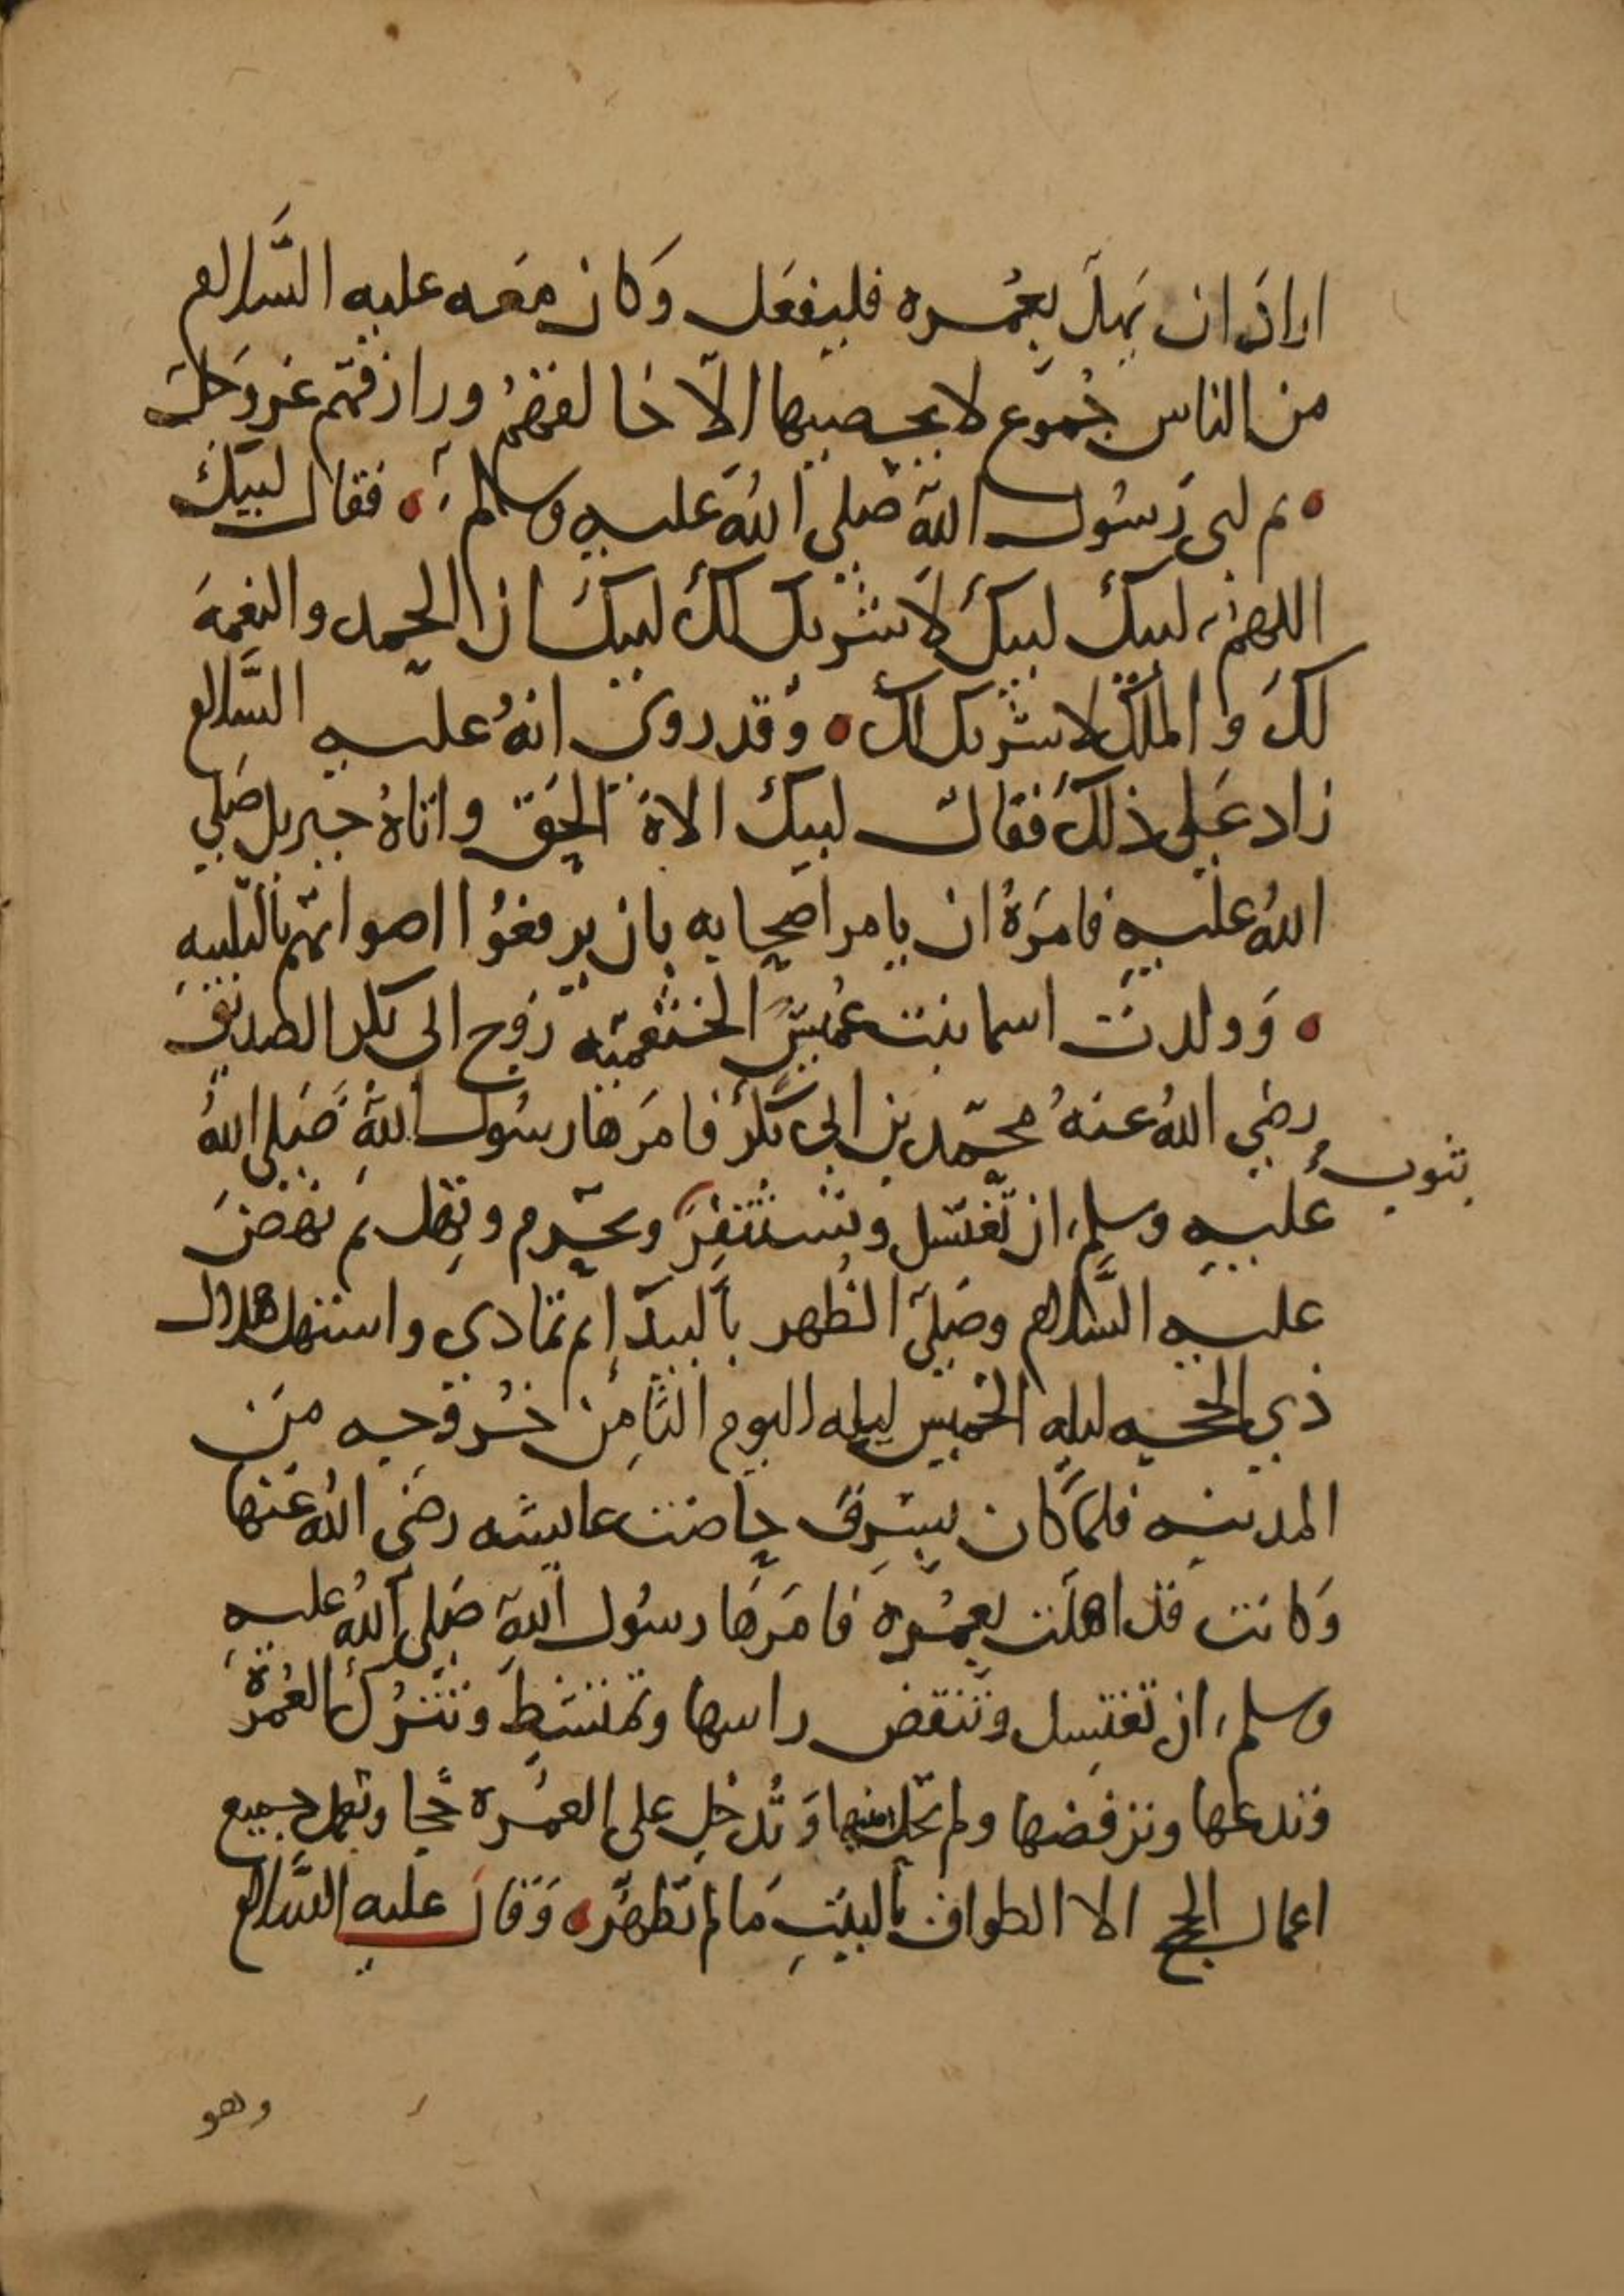 اراد ان يهل بعمره فليفعل وكان معه عليه السلام
من الناس جموع لا يحصيها الا خالقهم ورازقهم عز وجل
ثم لبى رسول الله صلى الله عليه وسلم فقال لبيك
اللهم لبيك لبيك لا شريك لك لبيك ان الحمد والنعمه
لك والملك لا شريك لك وقد روي انه عليه السلام
زاد على ذلك فقال لبيك الاه الحق واتاه جبريل صلى
الله عليه فامره ان يامر اصحابه بان يرفعوا اصواتهم بالتلبيه
وولدت اسما بنت عميس الخثعميه زوج ابي بكر الصديق
رضي الله عنه محمد بن ابي بكر فامرها رسول الله صلى الله
عليه وسلم ان تغتسل وتستثفر وتحرم وتهل ثم نهض
بثوب
عليه السلام وصلى الظهر بالبيدا ثم تمادى واستهل هلال
ذي الحجه ليله الخميس ليله اليوم الثامن خروجه من
المدينه فلما كان بسرف حاضت عايشه رضي الله عنها
وكانت قد اهلت بعمره فامرها رسول الله صلى الله عليه
وسلم ان تغتسل وتنقض راسها وتمتشط وتترك العمرة
وتدعها وترفضها ولم تحل منها وتدخل على العمره حجا وتعمل جميع
اعمال الحج الا الطواف بالبيت ما لم تطهر وقال عليه السلام
وهو